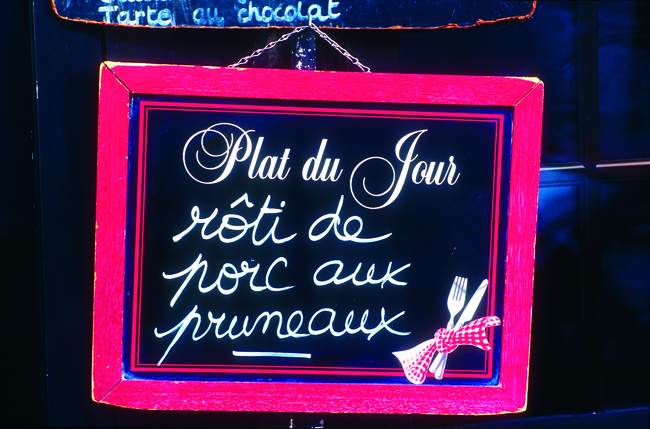 Tarte au chocolat
Plat du Jour
rôti de
porc aux
pruneaux